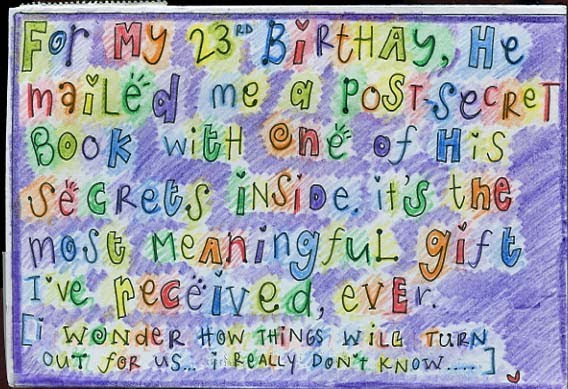 FOR MY 23RD BiRtHAY, HE
mAiLed me a POST-SeCRET
BOOK witH one of His
SecRets inside. it's the
most meaningful gift
I've received, eveR.
[i WONDER HOW THINGS WILL TURN
OUT FOR US... i REALLY DON'T KNOW.....]